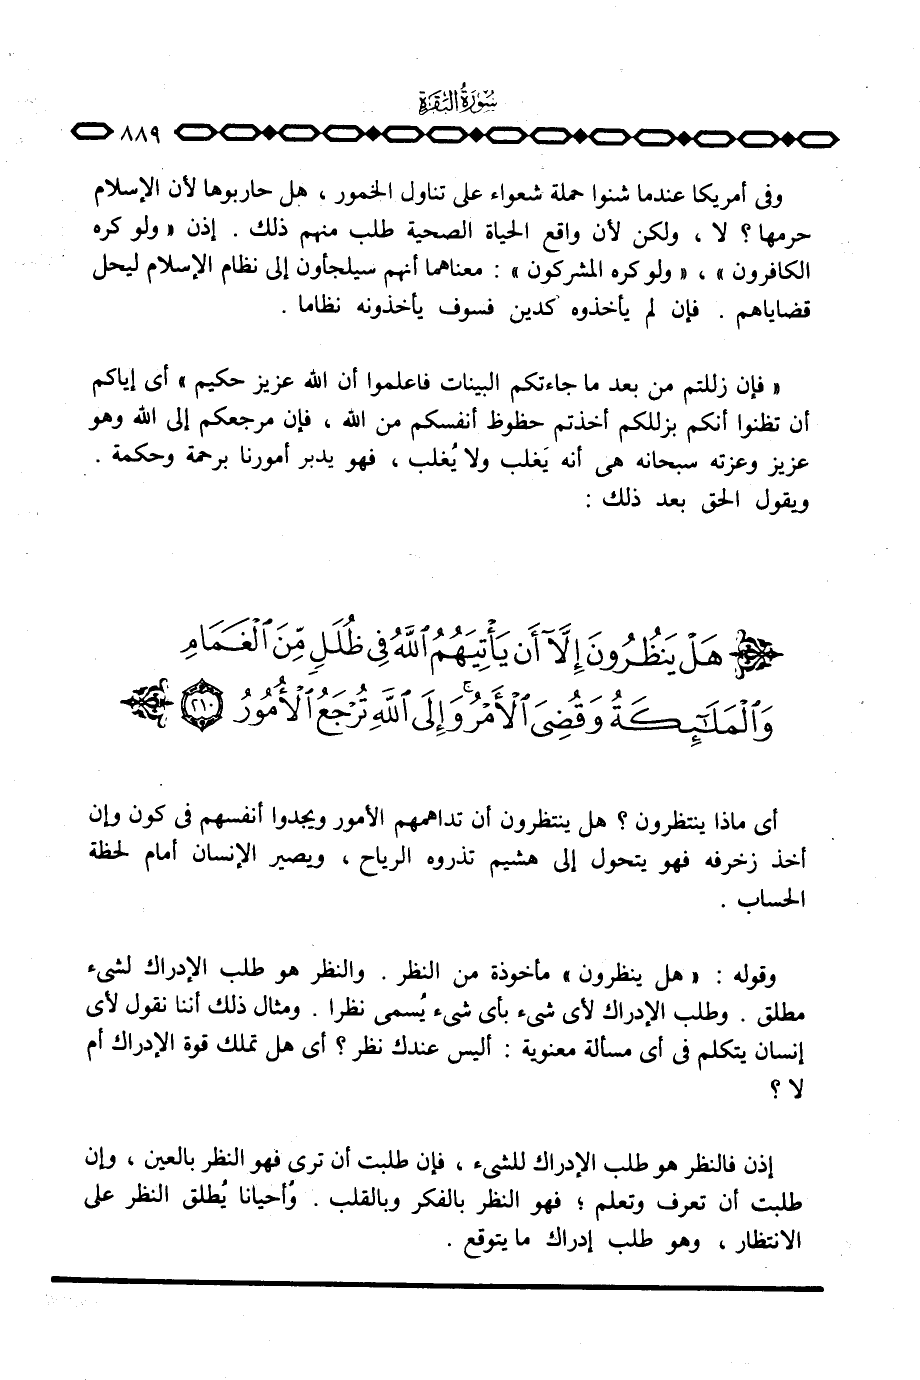 سُورَةُ البَقَرَةِ
٨٨٩
وفى أمريكا عندما شنوا حملة شعواء على تناول الخمور ، هل حاربوها لأن الإسلام
حرمها ؟ لا ، ولكن لأن واقع الحياة الصحية طلب منهم ذلك . إذن « ولو كره
الكافرون » ، « ولو كره المشركون » : معناهما أنهم سيلجأون إلى نظام الإسلام ليحل
قضاياهم . فإن لم يأخذوه كدين فسوف يأخذونه نظاما .
« فإن زللتم من بعد ما جاءتكم البينات فاعلموا أن الله عزيز حكيم » أى إياكم
أن تظنوا أنكم بزللكم أخذتم حظوظ أنفسكم من الله ، فإن مرجعكم إلى الله وهو
عزيز وعزته سبحانه هى أنه يَغلب ولا يُغلب ، فهو يدبر أمورنا برحمة وحكمة .
ويقول الحق بعد ذلك :
هَلْ يَنظُرُونَ إِلَّآ أَن يَأْتِيَهُمُ ٱللَّهُ فِى ظُلَلٍ مِّنَ ٱلْغَمَامِ
وَٱلْمَلَٰٓئِكَةُ وَقُضِىَ ٱلْأَمْرُ ۚ وَإِلَى ٱللَّهِ تُرْجَعُ ٱلْأُمُورُ ٢١٠
أى ماذا ينتظرون ؟ هل ينتظرون أن تداهمهم الأمور ويجدوا أنفسهم فى كون وإن
أخذ زخرفه فهو يتحول إلى هشيم تذروه الرياح ، ويصير الإنسان أمام لحظة
الحساب .
وقوله : « هل ينظرون » مأخوذة من النظر . والنظر هو طلب الإدراك لشىء
مطلق . وطلب الإدراك لأى شىء بأى شىء يُسمى نظرا . ومثال ذلك أننا نقول لأى
إنسان يتكلم فى أى مسألة معنوية : أليس عندك نظر ؟ أى هل تملك قوة الإدراك أم
لا ؟
إذن فالنظر هو طلب الإدراك للشىء ، فإن طلبت أن ترى فهو النظر بالعين ، وإن
طلبت أن تعرف وتعلم ؛ فهو النظر بالفكر وبالقلب . وأحيانا يُطلق النظر على
الانتظار ، وهو طلب إدراك ما يتوقع .